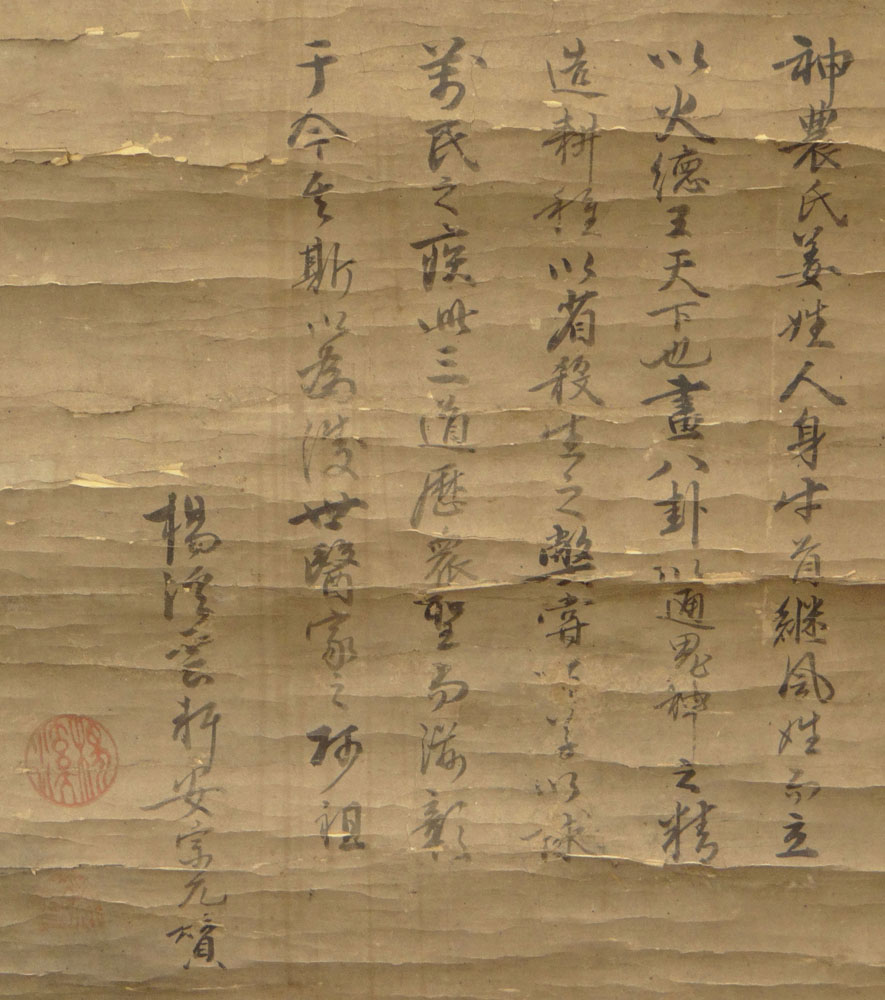 神農氏姜姓人身牛首継風姓而立
以火德王天下也畫八卦以通鬼神之精
造耕種以省殺生之弊嘗百草以救
万民之疾此三道歴衆聖而滋彰
于今矣斯以為後世醫家之師祖
楊溪雲軒安宗元賛
楊溪